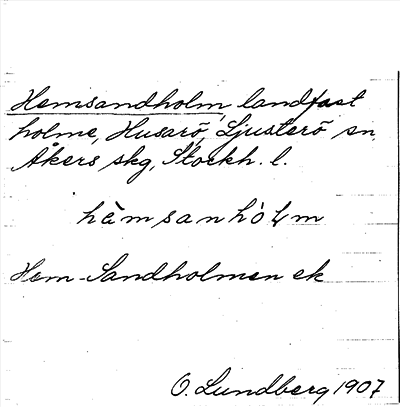 Hemsandholm, landfast
holme, Husarö, Ljusterö sn,
Åkers skg, Stockh. l.
hèmsanhòłm
Hem-Sandholmen ek
O. Lundberg 1907